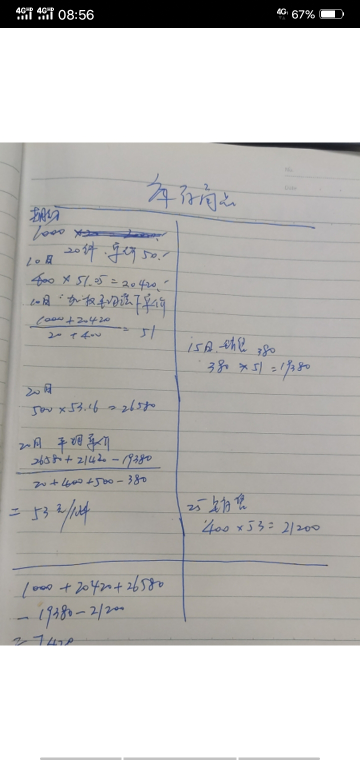 08:56
4G 67%
库存商品
期初
1000
20件 单价50.
10日
400 × 51.05 = 20420.
10日
1000+20420
20+400
= 51
15日 销售 380
380 × 51 = 19380
20日
500 × 53.16 = 26580
20日 平均单价
26580+21420-19380
20+400+500-380
= 53元/件
25 销售
400 × 53 = 21200
1000 + 20420 + 26580
- 19380 - 21200
= 7420